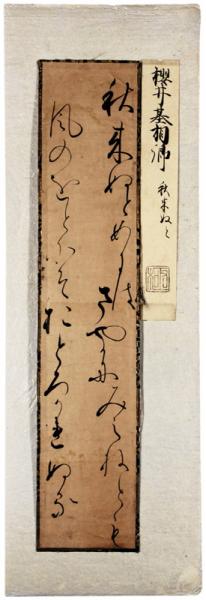 櫻井基
秋来ぬと
秋来ぬとめにはさやかにみえねとも
風のをとにそおとろかれぬる